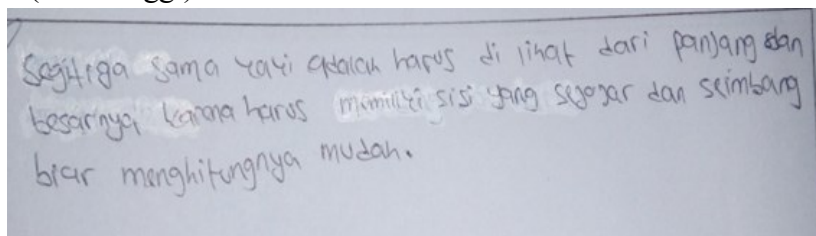 Segitiga sama kaki adalah harus di lihat dari panjang dan
besarnya karna harus memiliki sisi yang sejajar dan seimbang
biar menghitungnya mudah.